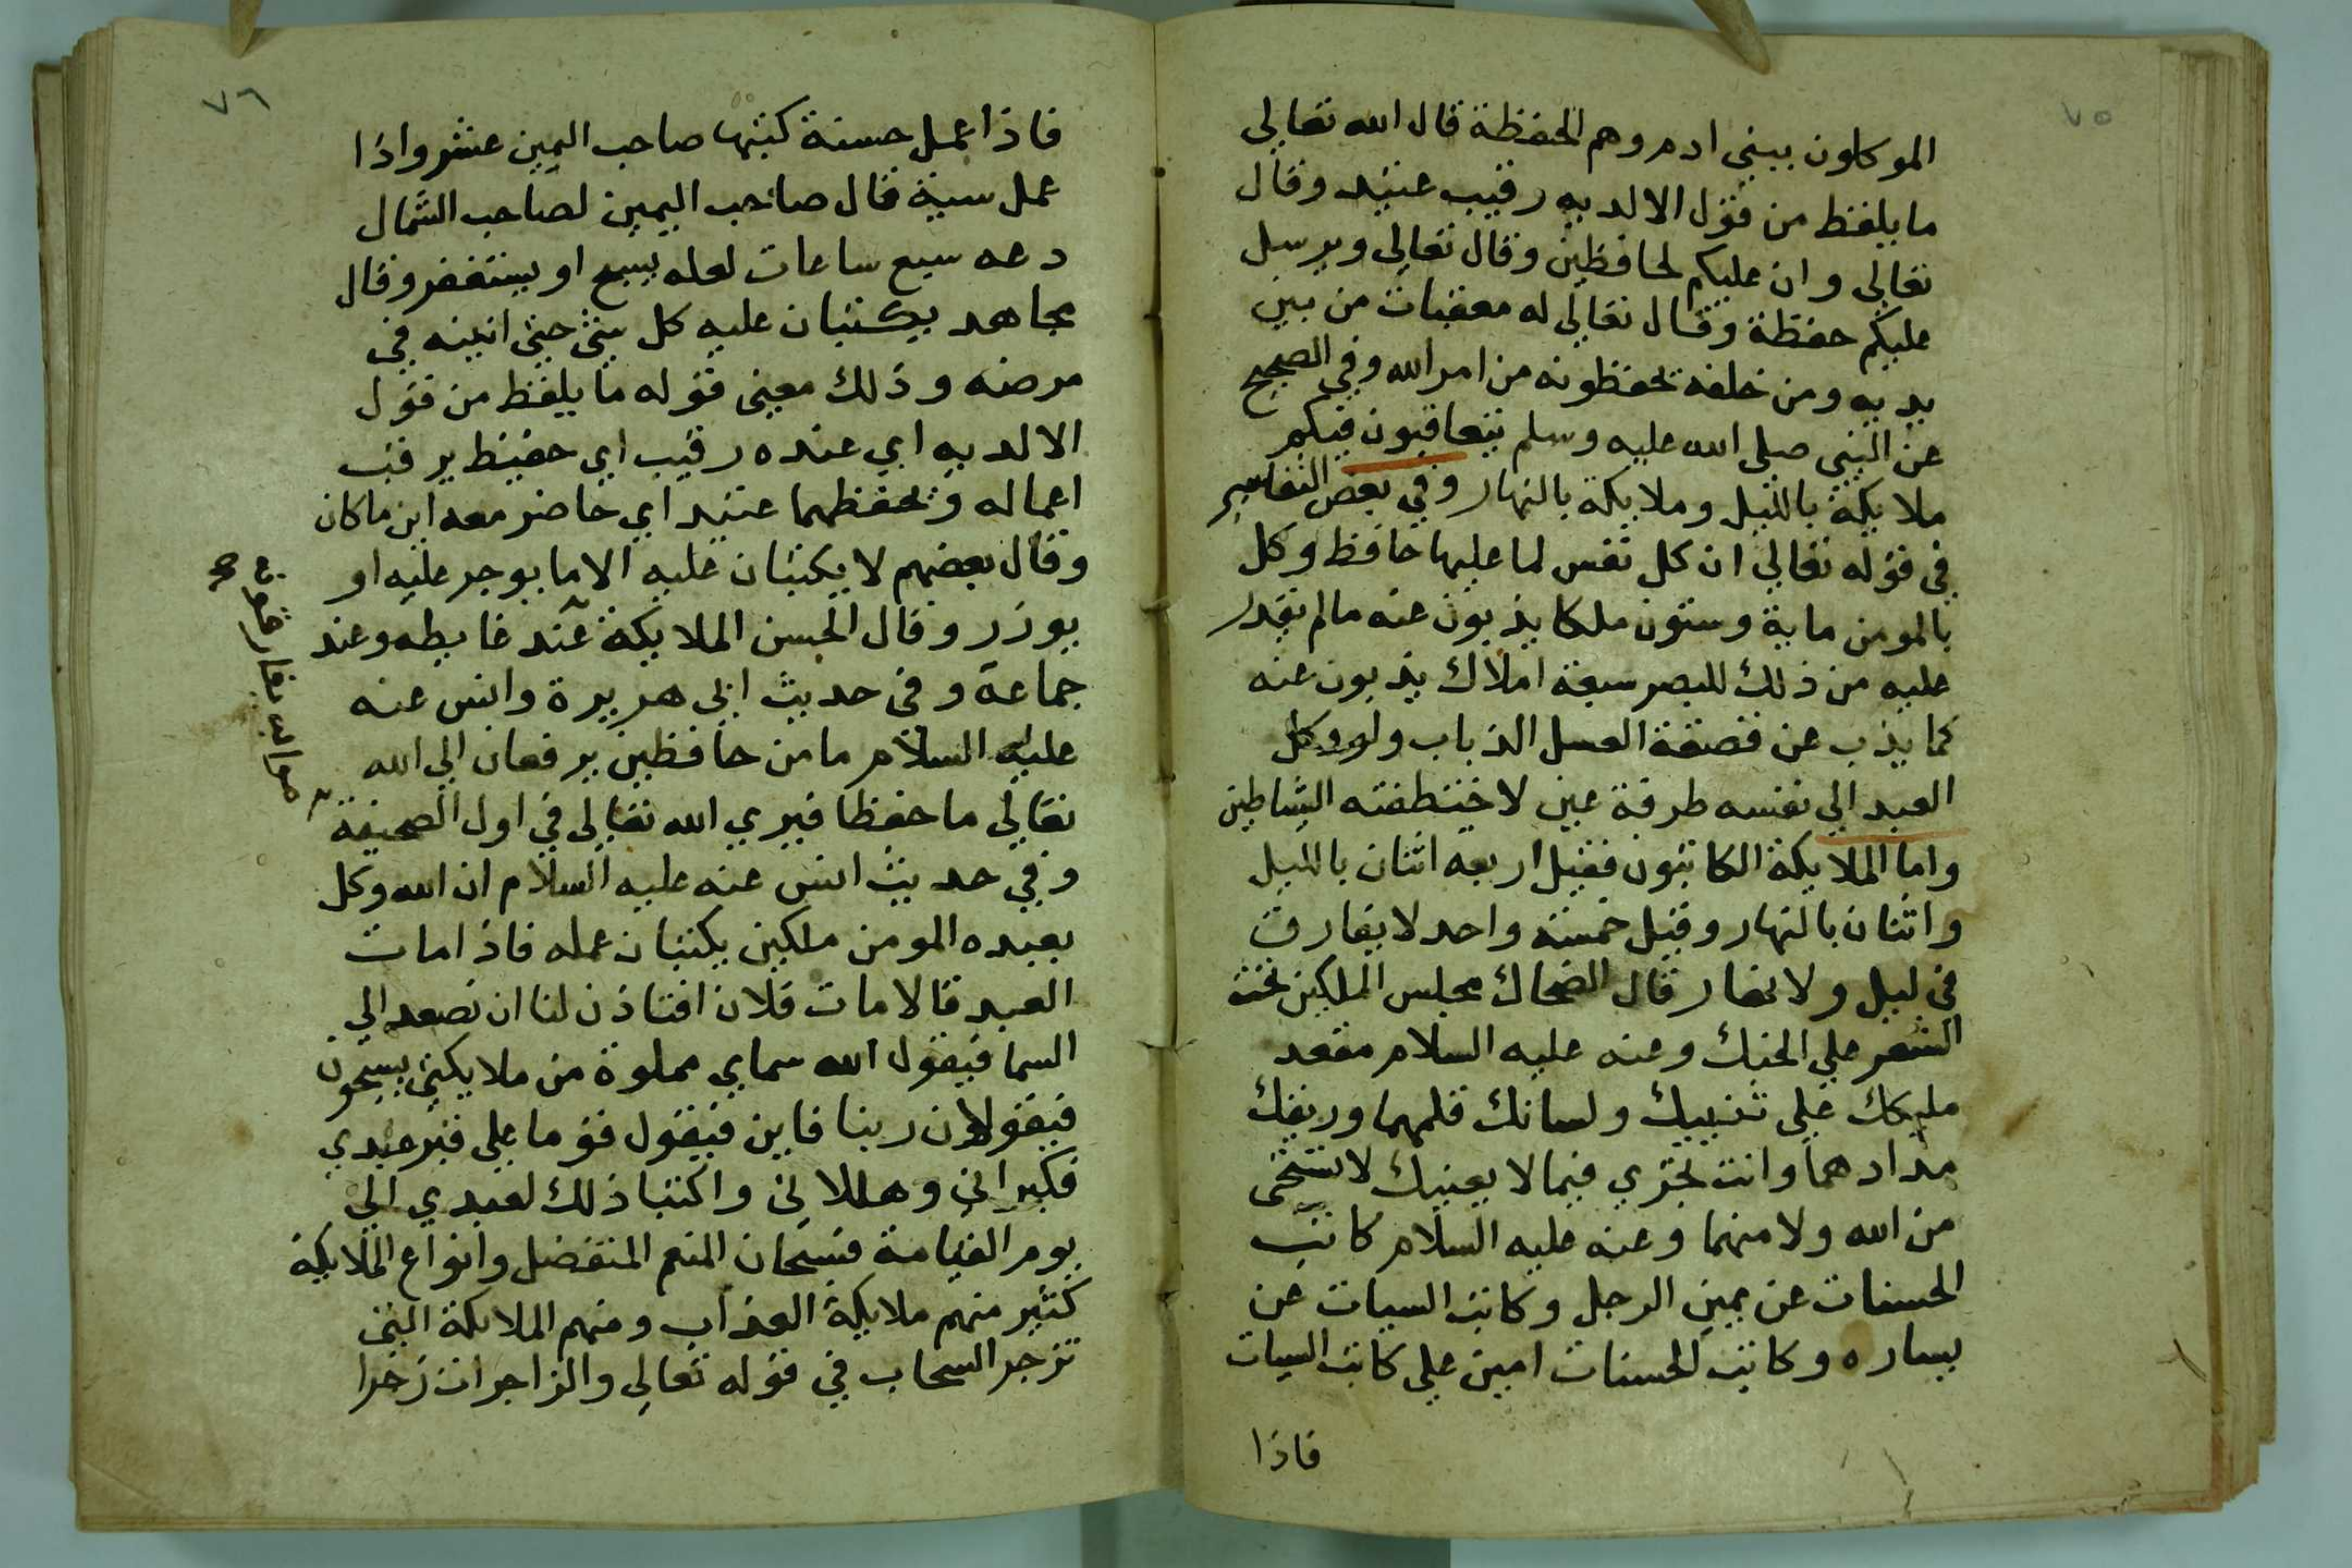 ٧٥
الموكلون ببني ادم وهم الحفظة قال الله تعالي
ما يلفظ من قول الا لديه رقيب عتيد وقال
تعالي وان عليكم لحافظين وقال تعالي ويرسل
عليكم حفظة وقال تعالي له معقبات من بين
يديه ومن خلفه يحفظونه من امر الله وفي الصحيح
عن النبي صلي الله عليه وسلم يتعاقبون فيكم
ملايكة بالليل وملايكة بالنهار وفي بعض التفاسير
في قوله تعالي ان كل نفس لما عليها حافظ وكل
بالمومن ماية وستون ملكا يذبون عنه ما لم يقدر
عليه من ذلك للبصر سبعة املاك يذبون عنه
كما يذب عن قصعة العسل الذباب ولو وكل
العبد الي نفسه طرفة عين لاختطفته الشياطين
واما الملايكة الكاتبون فقيل اربعه اثنان بالليل
واثنان بالنهار وقيل خمسة واحد لا يفارق
في ليل ولا نهار قال الضحاك مجلس الملكين تحت
الشعر علي الحنك وعنه عليه السلام مقعد
مليكك علي ثنييك ولسانك قلمهما وريقك
مدادهما وانت تجري فيما لا يعنيك لا تستحي
من الله ولا منهما وعنه عليه السلام كاتب
الحسنات عن يمين الرجل وكاتب السيات عن
يساره وكاتب الحسنات امين علي كاتب السيات
فاذا
٧٦
فاذا عمل حسنة كتبها صاحب اليمين عشر واذا
عمل سية قال صاحب اليمين لصاحب الشمال
دعه سبع ساعات لعله يسبح او يستغفر وقال
مجاهد يكتبان عليه كل شي حتي انينه في
مرضه وذلك معني قوله ما يلفظ من قول
الا لديه اي عنده رقيب اي حفيظ يرقب
اعماله ويحفظهما عتيد اي حاضر معه اين ما كان
وقال بعضهم لا يكتبان عليه الا ما يوجر عليه او
يوزر وقال الحسن الملايكة عند غايطه وعند
جماعة وفي حديث ابي هريرة وانس عنه
عليه السلام ما من حافظين يرفعان الي الله
تعالي ما حفظا فيري الله تعالي في اول الصحيفة
وفي حديث انس عنه عليه السلام ان الله وكل
بعبده المومن ملكين يكتبان عمله فاذا مات
العبد قالا مات فلان افتاذن لنا ان نصعد الي
السما فيقول الله سماي مملوة من ملايكتي يسبحون
فيقولان ربنا فاين فيقول قوما علي قبر عبدي
فكبراني وهللاني واكتبا ذلك لعبدي الي
يوم القيامة فسبحان المنعم المتفضل وانواع الملايكة
كثير منهم ملايكة العذاب ومنهم الملايكة التي
تزجر السحاب في قوله تعالي والزاجرات زجرا